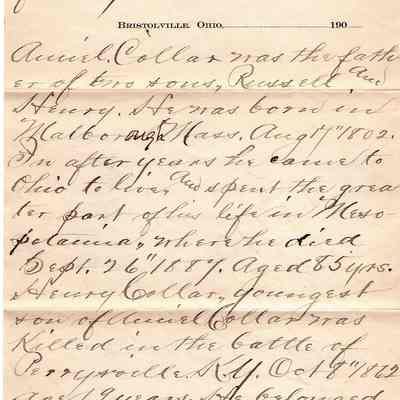 Bristolville, Ohio, 190
Auriel. Collar was the fath
er of two sons, Russell and
Henry. He was born in
Malborough Mass. Aug 17" 1802.
In after years he came to
Ohio to live, and spent the grea
ter part of his life in Meso-
potamia, where he died
Sept. 26" 1887. Aged 85 yrs.
Henry Collar, youngest
son of Auriel Collar was
Killed in the battle of
Perrysville. K.Y. Oct 8" 1862
Aged 19 years. He belonged